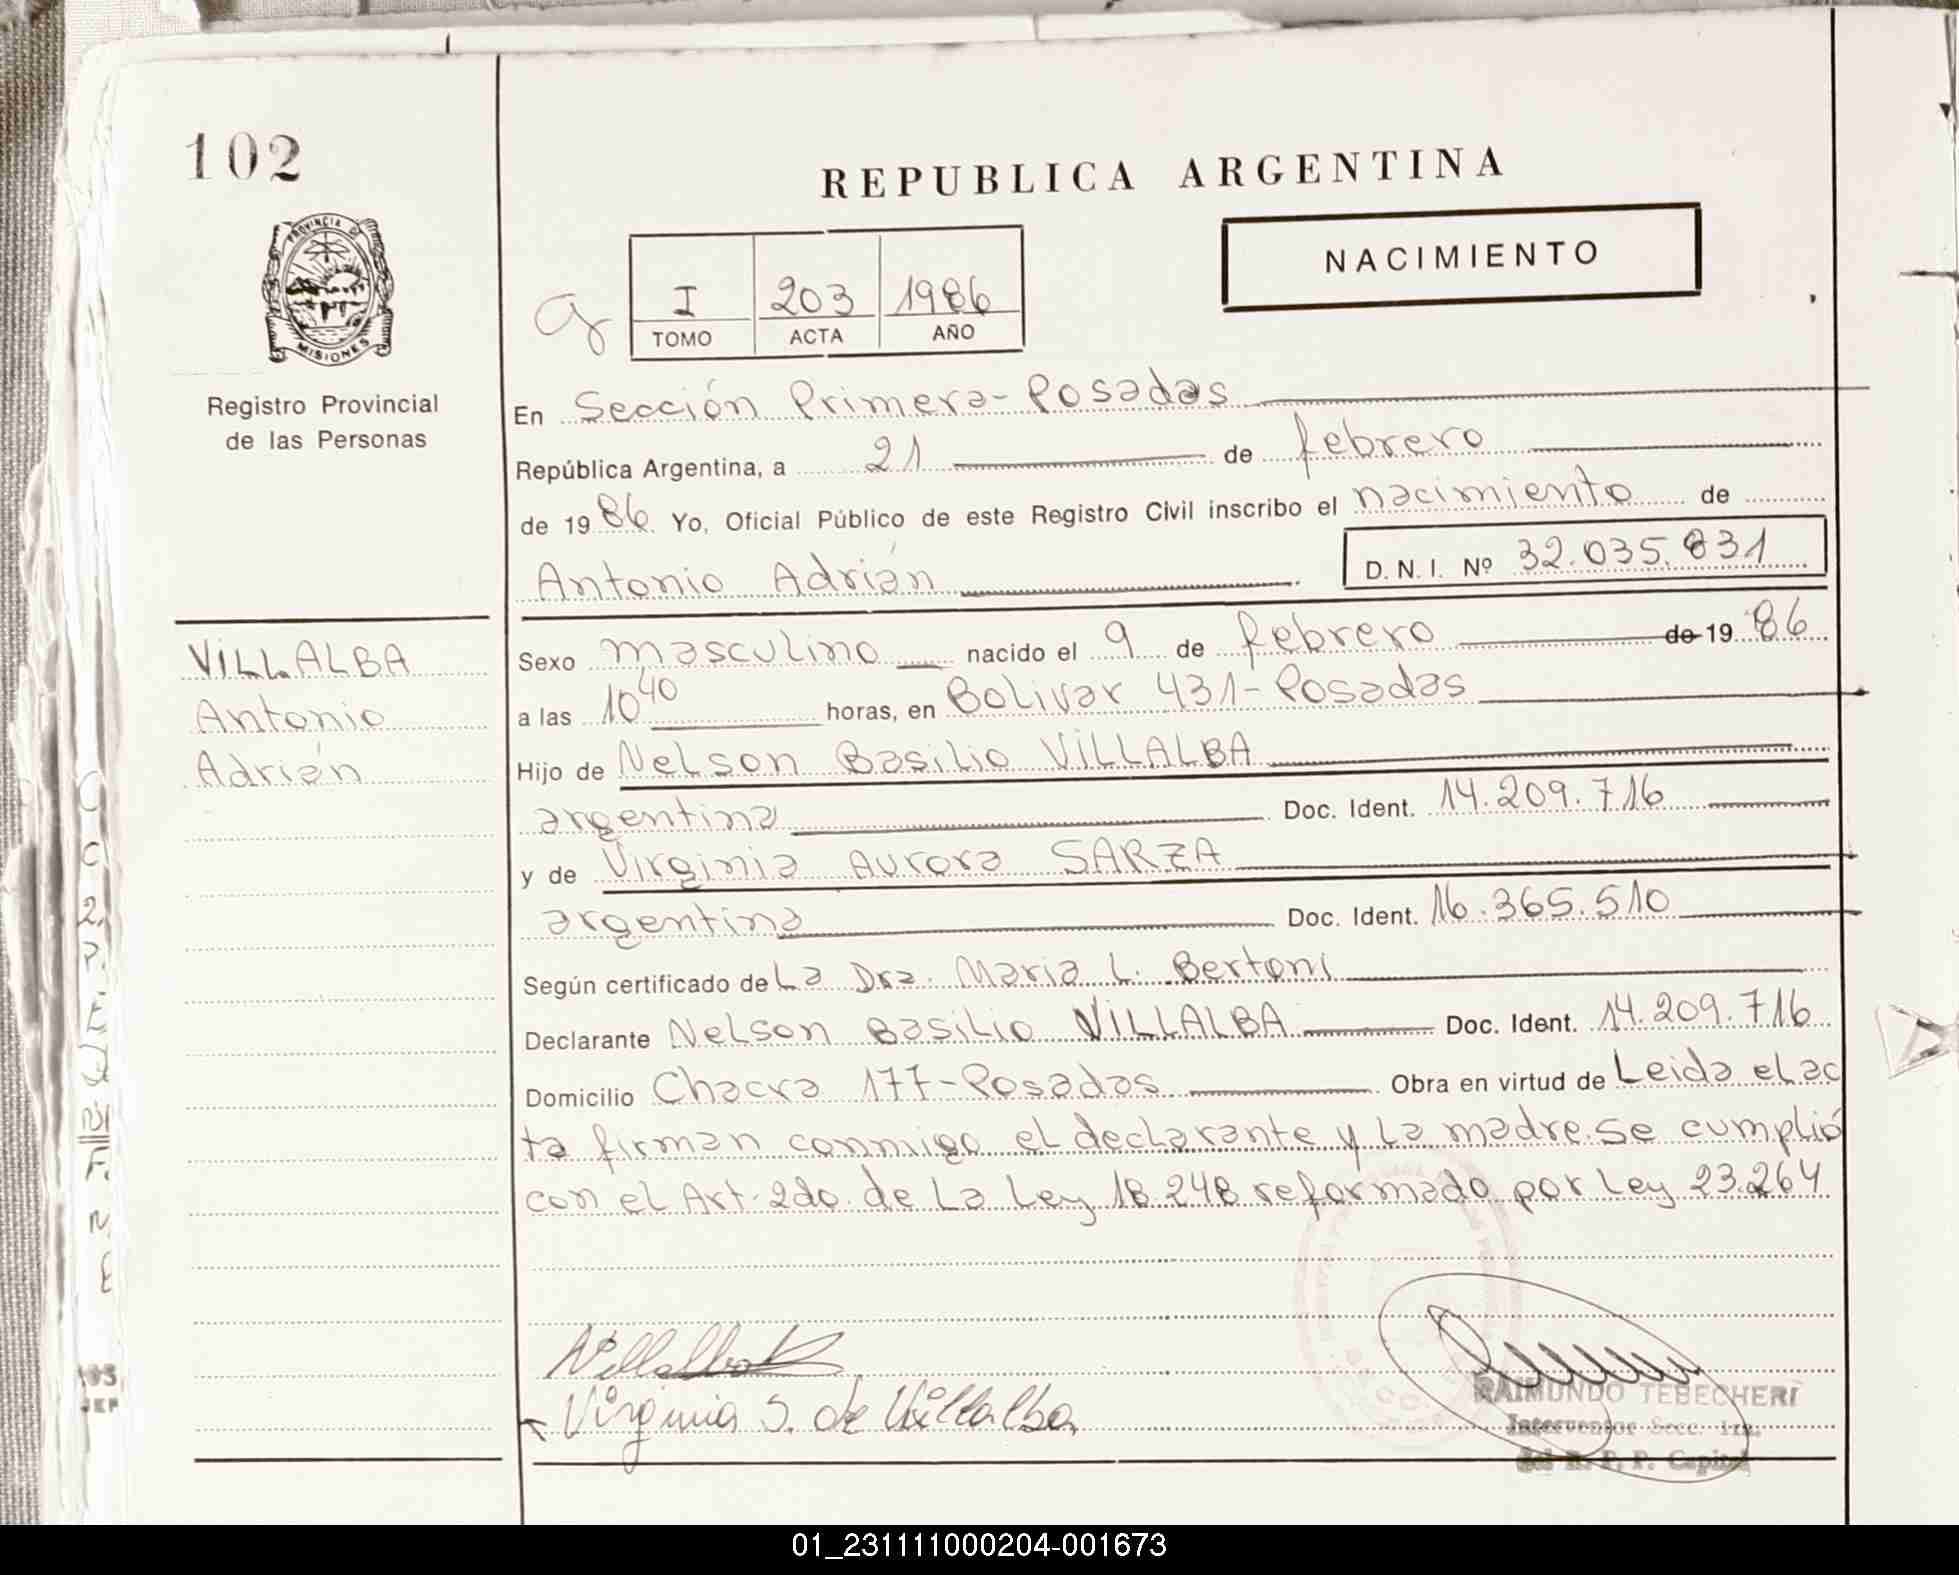 102
REPUBLICA ARGENTINA
PROVINCIA DE
MISIONES
NACIMIENTO
I 203 1986
TOMO ACTA AÑO
Registro Provincial
de las Personas
En Sección Primera-Posadas
República Argentina, a 21 de febrero
de 1986. Yo, Oficial Público de este Registro Civil inscribo el nacimiento de
Antonio Adrián
D. N. I. Nº 32.035.831
VILLALBA
Antonio
Adrián
Sexo masculino nacido el 9 de febrero de 1986
a las 10 40 horas, en Bolivar 431-Posadas
Hijo de Nelson Basilio VILLALBA
argentina Doc. Ident. 14.209.716
y de Virginia Aurora SARZA
argentina Doc. Ident. 16.365.510
Según certificado de La Dra. Maria L. Bertoni
Declarante Nelson Basilio VILLALBA Doc. Ident. 14.209.716
Domicilio Chacra 177-Posadas Obra en virtud de Leida el ac
ta firman conmigo el declarante y la madre. Se cumplió
con el Art. 2do. de la Ley 18.248 reformado por Ley 23.264
Villalba
Virginia S. de Villalba
RAIMUNDO TEBECHERI
Interventor Secc. 1ra.
del R. P. P. Capital
01_231111000204-001673